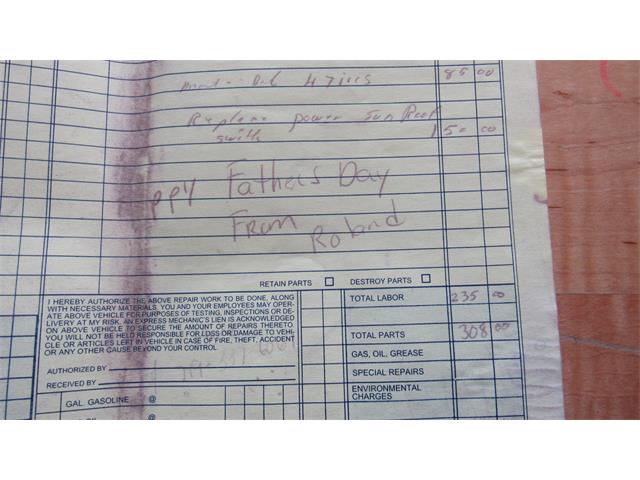 4 Tires 85 00
Replace power Sun Roof
swith 150 00
ppy Fathers Day
From Roland
RETAIN PARTS DESTROY PARTS
I HEREBY AUTHORIZE THE ABOVE REPAIR WORK TO BE DONE, ALONG
WITH NECESSARY MATERIALS. YOU AND YOUR EMPLOYEES MAY OPER-
ATE ABOVE VEHICLE FOR PURPOSES OF TESTING, INSPECTIONS OR DE-
LIVERY AT MY RISK. AN EXPRESS MECHANIC'S LIEN IS ACKNOWLEDGED
ON ABOVE VEHICLE TO SECURE THE AMOUNT OF REPAIRS THERETO.
YOU WILL NOT BE HELD RESPONSIBLE FOR LOSS OR DAMAGE TO VEHI-
CLE OR ARTICLES LEFT IN VEHICLE IN CASE OF FIRE, THEFT, ACCIDENT
OR ANY OTHER CAUSE BEYOND YOUR CONTROL.
AUTHORIZED BY
RECEIVED BY
GAL. GASOLINE @
@
TOTAL LABOR 235 00
TOTAL PARTS 308 00
GAS, OIL, GREASE
SPECIAL REPAIRS
ENVIRONMENTAL
CHARGES